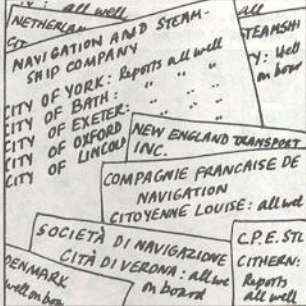 : all well
NETHERLAN
all
TEAMSHI
Y: Well
on boar
NAVIGATION AND STEAM-
SHIP COMPANY
CITY OF YORK: Reports all well
CITY OF BATH: " " "
CITY OF EXETER: " " "
CITY OF OXFORD " "
CITY OF LINCOL
NEW ENGLAND TRANSPORT
INC.
COMPAGNIE FRANCAISE DE
NAVIGATION
CITOYENNE LOUISE: all wel
SOCIETÀ DI NAVIGAZIONE
CITÀ DI VERONA: all we
on board
C.P.E. STL
CITHERN:
Reports
all well
DENMARK
well on boa